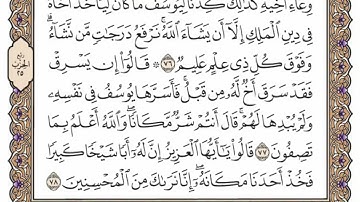 وِعَآءِ أَخِيهِ كَذَٰلِكَ كِدْنَا لِيُوسُفَ مَا كَانَ لِيَأْخُذَ أَخَاهُ
فِى دِينِ ٱلْمَلِكِ إِلَّآ أَن يَشَآءَ ٱللَّهُ نَرْفَعُ دَرَجَٰتٍ مَّن نَّشَآءُ
وَفَوْقَ كُلِّ ذِى عِلْمٍ عَلِيمٌ ٧٦ ۞ قَالُوٓا۟ إِن يَسْرِقْ
فَقَدْ سَرَقَ أَخٌ لَّهُۥ مِن قَبْلُ فَأَسَرَّهَا يُوسُفُ فِى نَفْسِهِۦ
وَلَمْ يُبْدِهَا لَهُمْ قَالَ أَنتُمْ شَرٌّ مَّكَانًا وَٱللَّهُ أَعْلَمُ بِمَا
تَصِفُونَ ٧٧ قَالُوا۟ يَٰٓأَيُّهَا ٱلْعَزِيزُ إِنَّ لَهُۥٓ أَبًا شَيْخًا كَبِيرًا
فَخُذْ أَحَدَنَا مَكَانَهُۥٓ إِنَّا نَرَىٰكَ مِنَ ٱلْمُحْسِنِينَ ٧٨
ربع
الحزب
٢٥